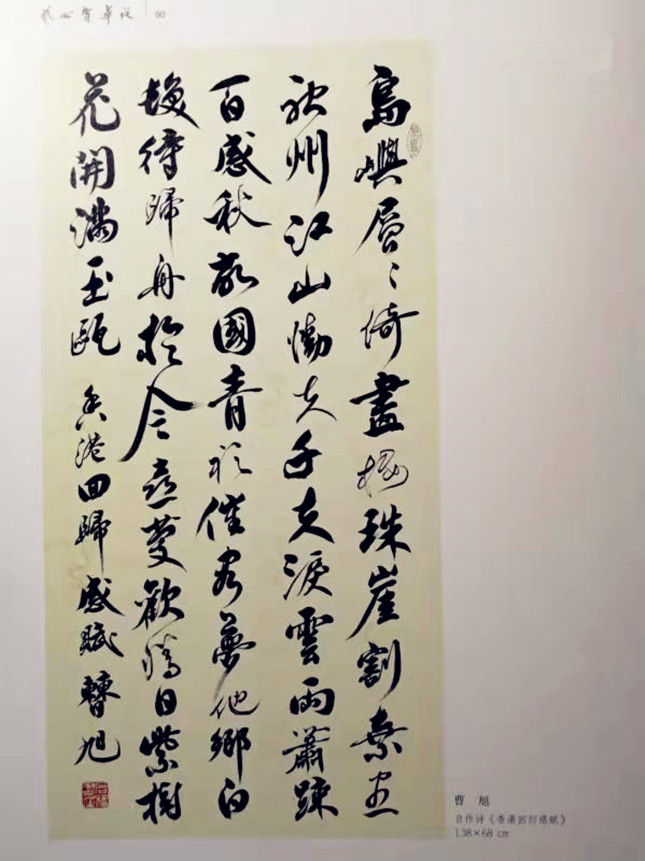 90
島嶼層〻倚畫樓珠崖割棄
神州江山慟失千夫淚雲雨蕭疎
百感秋故國青衫催客夢他鄉白
髮待歸舟於今喜慶歡騰日紫樹
花開滿玉甌 香港回歸感賦 曹旭
曹 旭
自作诗《香港回归感赋》
138×68 cm